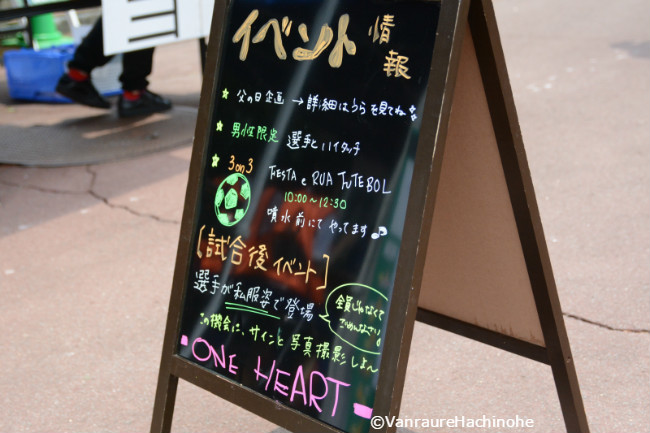 イベント情報
☆父の日企画 → 詳細はうらを見てね
☆男性限定 選手とハイタッチ
☆3on3 FIESTA e RUA FUTEBOL
10:00〜12:30
噴水前にてやってます♪
[試合後イベント]
選手が私服姿で登場
全員じゃなくて
ごめんなさい
この機会に、サインと写真撮影しよ〜
ONE HEART
©VanraureHachinohe